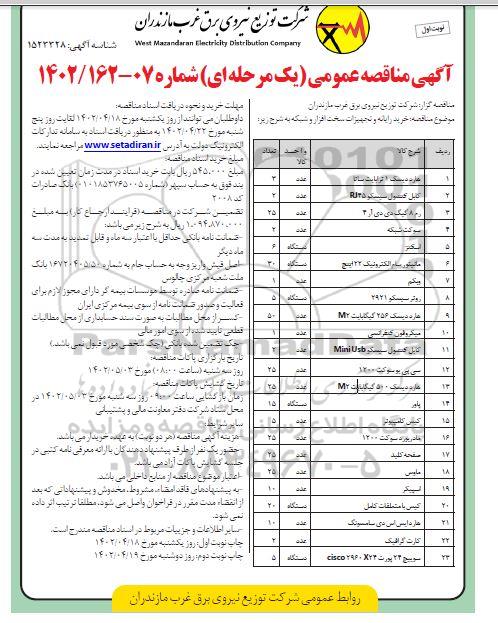 شرکت توزیع نیروی برق غرب مازندران
West Mazandaran Electricity Distribution Company
نوبت اول
شناسه آگهی: ۱۵۲۳۳۲۸
آگهی مناقصه عمومی (یک مرحله ای) شماره ۰۷-۱۶۲/۱۴۰۲
مناقصه گزار: شرکت توزیع نیروی برق غرب مازندران
موضوع مناقصه: خرید رایانه و تجهیزات سخت افزار و شبکه به شرح زیر:
ردیف شرح کالا واحد کالا تعداد
۱ هارددیسک ۱ ترابایت ساتا عدد ۳
۲ کابل کنسول سیسکو RJ۴۵ عدد ۲
۳ رم ۸ گیگ دی دی آر ۴ عدد ۲۵
۴ سوکت شبکه عدد ۲
۵ اسکنر دستگاه ۶
۶ مانیتور سام الکترونیک ۲۲ اینچ دستگاه ۳۰
۷ وبکم عدد ۱
۸ روتر سیسکو ۲۹۲۱ دستگاه ۵
۹ هارددیسک ۲۵۶ گیگابایت M۲ عدد ۵۰
۱۰ میکروفون کنفرانسی عدد ۱
۱۱ کابل کنسول سیسکو Mini Usb عدد ۲
۱۲ سی پی یو سوکت ۱۲۰۰ عدد ۲۵
۱۳ هارددیسک ۵۰۰ گیگابایت M۲ عدد ۲۵
۱۴ پاور دستگاه ۱۵
۱۵ کیس کامپیوتر دستگاه ۵
۱۶ مادربورد سوکت ۱۲۰۰ عدد ۲۵
۱۷ صفحه کلید عدد ۲۵
۱۸ ماوس عدد ۲۵
۱۹ اسپیکر عدد ۱۰
۲۰ کیس با متعلقات کامل دستگاه ۲۰
۲۱ هارد اس اس دی سامسونگ عدد ۱۰
۲۲ کارت گرافیک عدد ۲
۲۳ سوییچ ۲۴ پورت cisco ۲۹۶۰ X۲۴ دستگاه ۵
مهلت خرید و نحوه دریافت اسناد مناقصه:
داوطلبان می توانند از روز یکشنبه مورخ ۱۴۰۲/۰۴/۱۸ لغایت روز پنج
شنبه مورخ ۱۴۰۲/۰۴/۲۲ به منظور دریافت اسناد به سامانه تدارکات
الکترونیک دولت به آدرس www.setadiran.ir مراجعه نمایند.
مبلغ خرید اسناد مناقصه:
مبلغ ۵۴۵.۰۰۰ ریال بابت خرید اسناد در مدت زمان تعیین شده در
بند فوق به حساب سپهر (شماره ۰۱۰۱۸۵۳۷۶۵۰۰۵) بانک صادرات
کد ۲۰۰۸
تضمین شرکت در مناقصه (فرایند ارجاع کار) به مبلغ
۱.۰۹۴.۸۷۰.۰۰۰ ریال به شرح زیر می باشد:
-ضمانت نامه بانکی حداقل با اعتبار سه ماه و قابل تمدید به مدت سه
ماه دیگر
-اصل فیش واریز وجه به حساب جام به شماره ۱۶۷۲۰۴۰۵/۵۰ بانک
ملت شعبه مرکزی چالوس
-ضمانت نامه صادره توسط موسسات بیمه گر دارای مجوز لازم برای
فعالیت و صدور ضمانت نامه از سوی بیمه مرکزی ایران
-کسر از محل مطالبات به صورت سند حسابداری از محل مطالبات
قطعی تایید شده از سوی امور مالی
-چک تضمین شده بانکی (چک شخصی مورد قبول نمی باشد.)
تاریخ بارگزاری پاکات مناقصه:
روز سه شنبه (ساعت ۰۸:۰۰) مورخ ۱۴۰۲/۰۵/۰۳
تاریخ گشایش پاکات مناقصه:
زمان بازگشایی ساعت ۰۹:۰۰ روز سه شنبه مورخ ۱۴۰۲/۰۵/۰۳ در
محل ستاد شرکت دفتر معاونت مالی و پشتیبانی
سایر شرایط:
-هزینه آگهی مناقصه (هر دو نوبت) به عهده خریدار می باشد.
-حضور یک نفر از طرف پیشنهاد دهندگان با ارائه معرفی نامه کتبی در
جلسه گشایش پاکات آزاد می باشد.
-اعتبار موضوع مناقصه از منابع داخلی می باشد.
-به پیشنهادهای فاقد امضاء، مشروط، مخدوش و پیشنهاداتی که بعد
از انقضاء مدت مقرر در فراخوان واصل می شود، مطلقا ترتیب اثر داده
نمی شود.
-سایر اطلاعات و جزییات مربوط در اسناد مناقصه مندرج است.
چاپ نوبت اول: روز یکشنبه مورخ ۱۴۰۲/۰۴/۱۸
چاپ نوبت دوم: روز دوشنبه مورخ ۱۴۰۲/۰۴/۱۹
روابط عمومی شرکت توزیع نیروی برق غرب مازندران